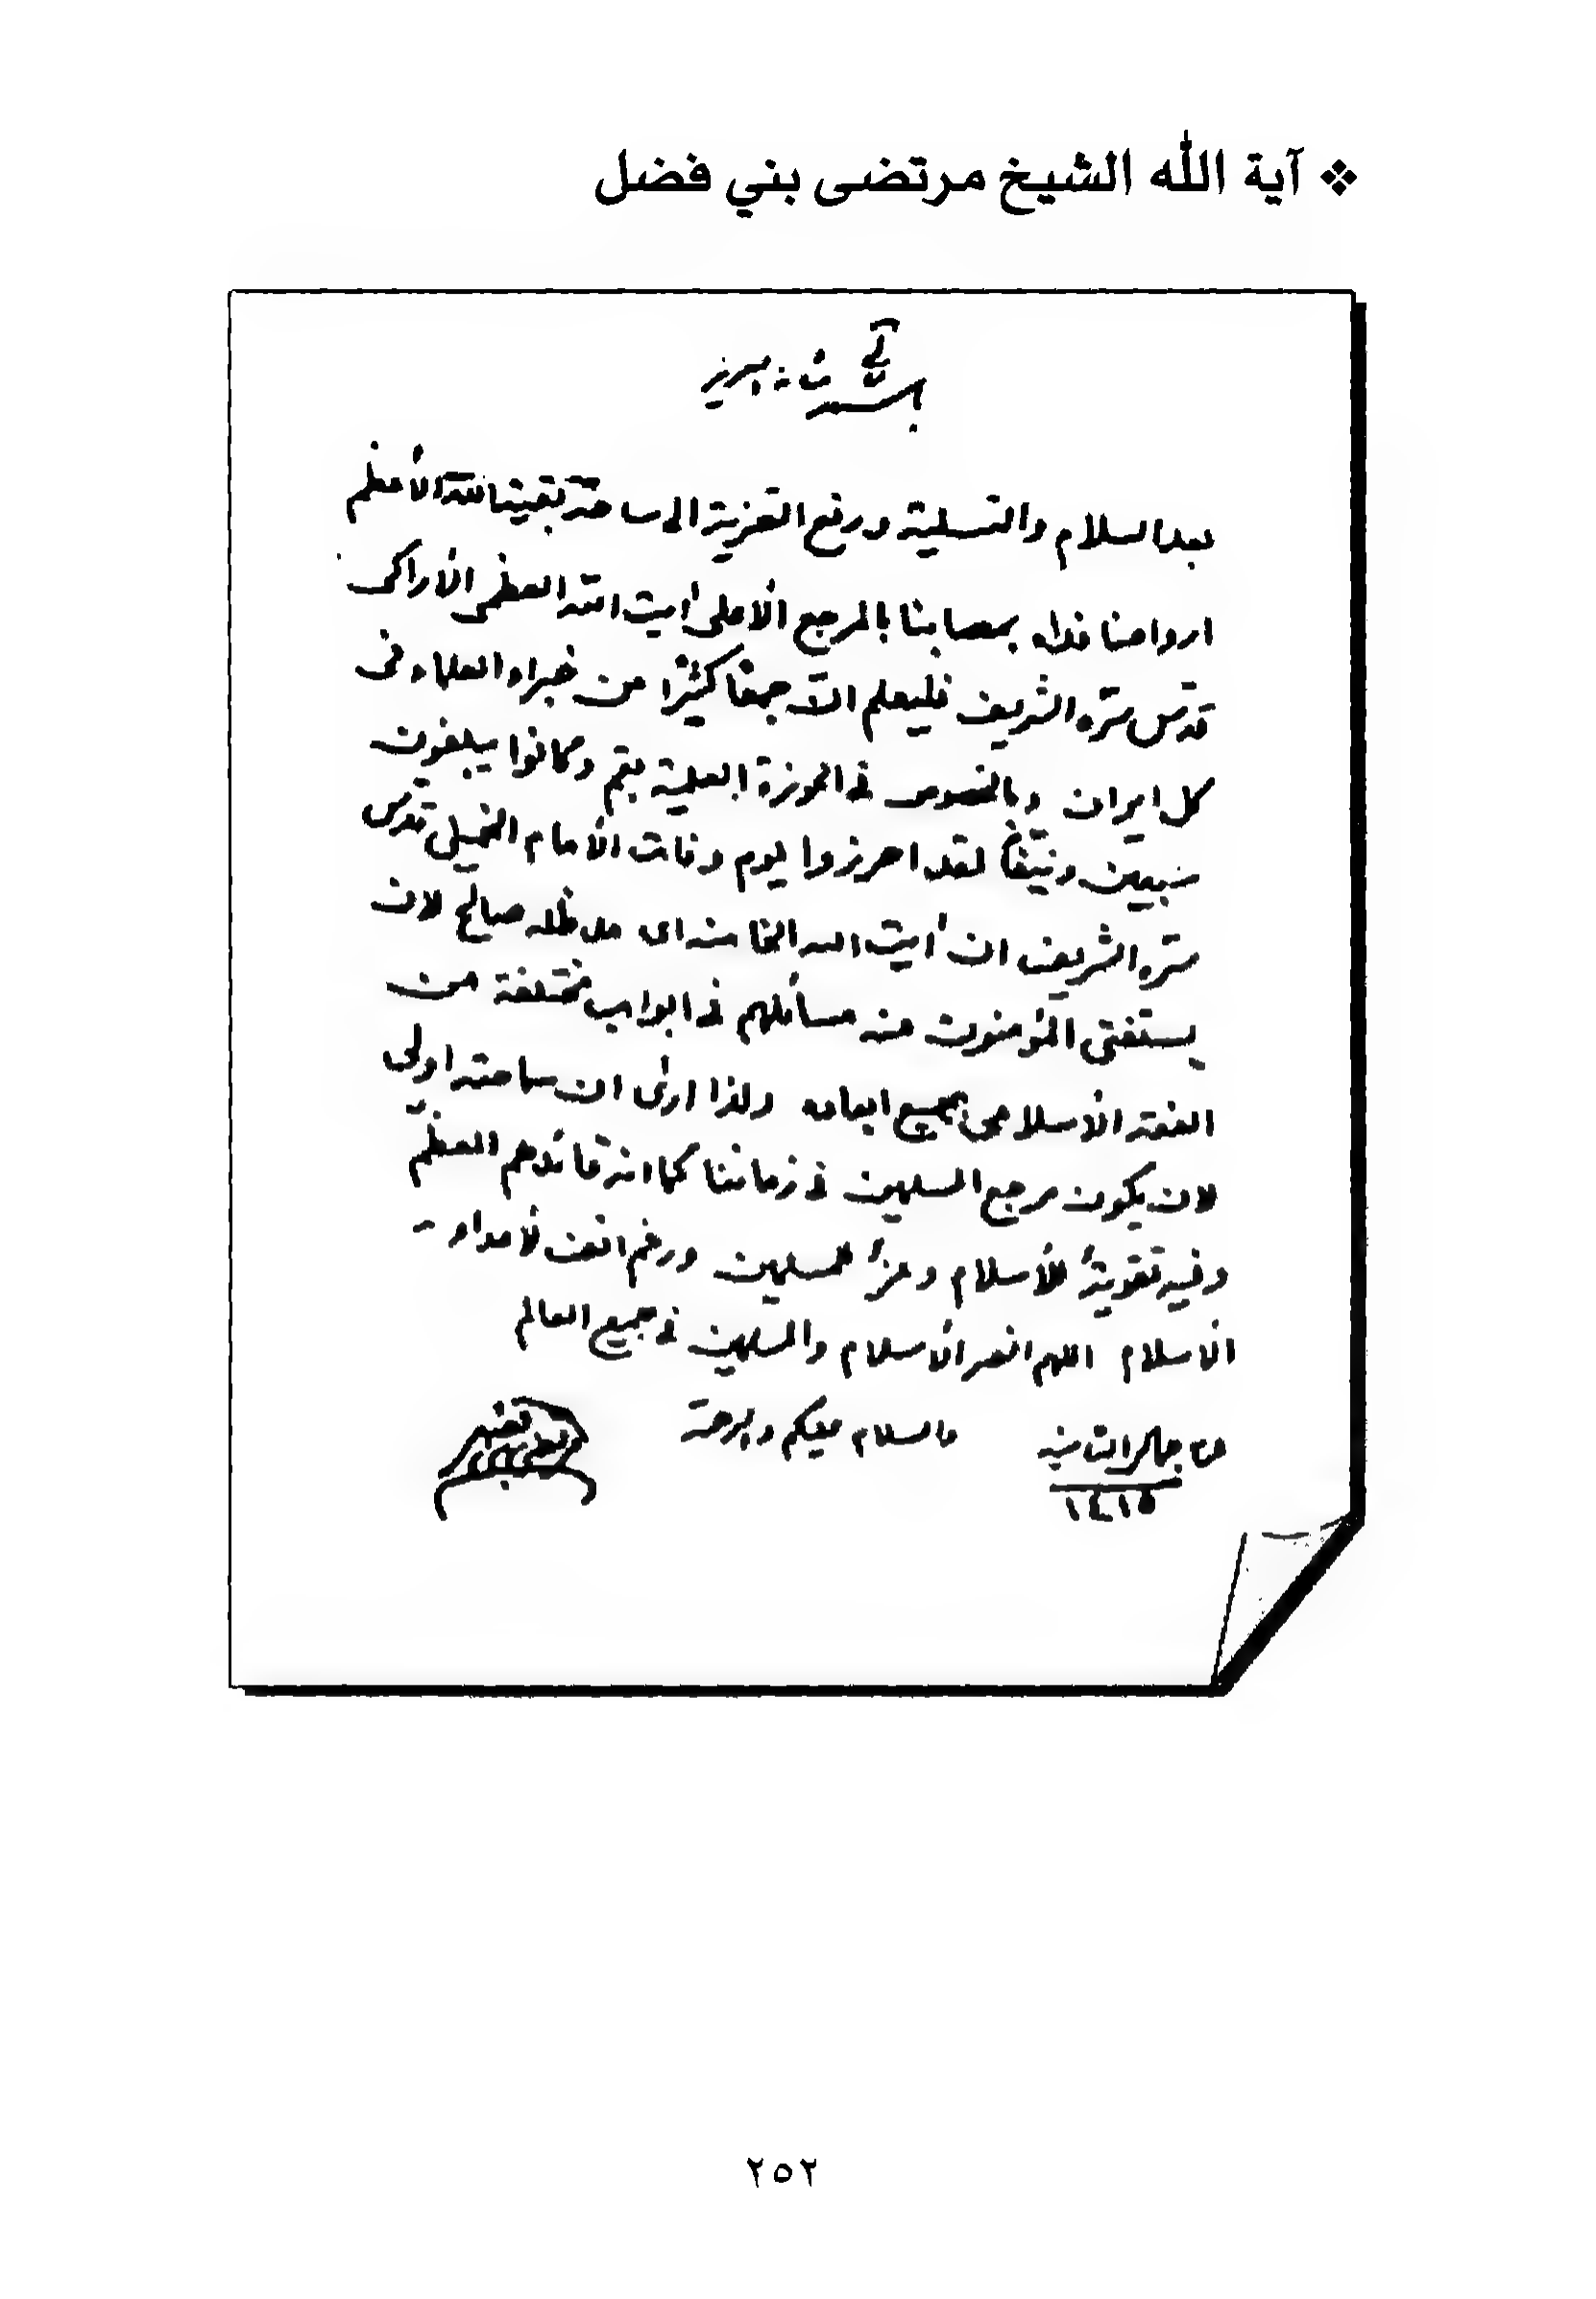 ❖ آية الله الشيخ مرتضى بني فضل
بعد السلام والتسلية ورفع التعزية الى ساحة بقيت الله الأعظم
ارواحنا فداه بمصابنا بالمرجع الأعلى آيت الله العظمى الأراكى
قدّس سّره الشريف فليعلم الآ جمعاً كثيرًا من خبراء العلماء فى
كل ايران وبالخصوص فى الحوزة العلمية بقم وكانوا يبلغون
سبعين ونيّفاً لقد احرزوا يوم وفات الأمام الخمينى قدّس
سّره الشريف ان آيت الله الخامنه اى مد ظله صالح لان
يستفتى المؤمنون منه مسائلهم فى ابواب مختلفة من
الفقه الأسلامى بجميع ابعاده ولذا ارى ان سماحته اولى
لان يكون مرجع المسلمين فى زماننا كما انه قائدهم المعظّم
وفيه تقوية للأسلام وعزاً للمسلمين ورغم انف لأعداء
الأسلام اللهم انصر الأسلام والمسلمين فى جميع العالم
والسلام عليكم ورحمة
١٤١٥
٢٥٢